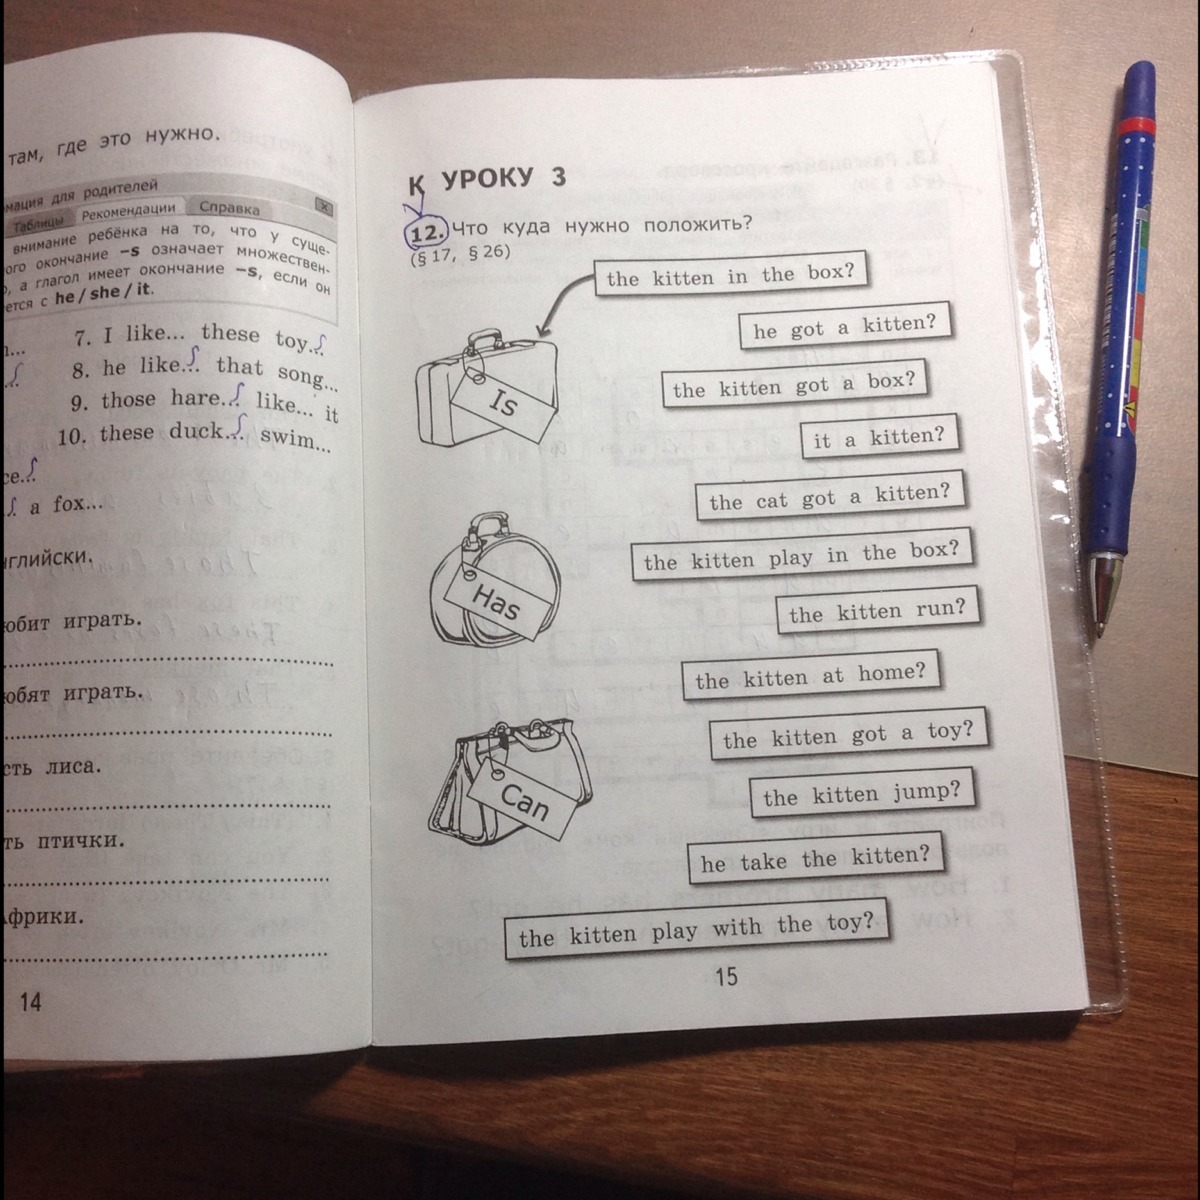 там, где это нужно.
мация для родителей
Таблицы Рекомендации Справка
внимание ребёнка на то, что у суще-
ного окончание –s означает множествен-
о, а глагол имеет окончание –s, если он
ется с he / she / it.
7. I like... these toy...s
8. he like...s that song...
9. those hare...s like... it
10. these duck...s swim...
ce...s
s a fox...
нглийски.
юбит играть.
юбят играть.
сть лиса.
ть птички.
Африки.
14
К УРОКУ 3
12. Что куда нужно положить?
(§ 17, § 26)
the kitten in the box?
he got a kitten?
the kitten got a box?
Is
it a kitten?
the cat got a kitten?
the kitten play in the box?
Has
the kitten run?
the kitten at home?
the kitten got a toy?
Can
the kitten jump?
he take the kitten?
the kitten play with the toy?
15